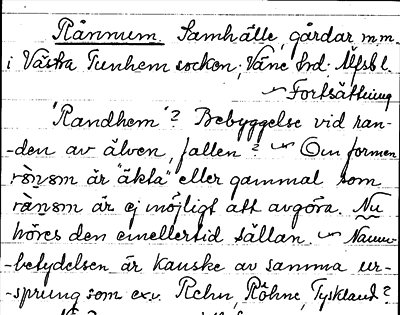 Rånnum. Samhälle, gårdar m.m.
i Västra Tunhem socken, Väne hd. Älfsb l.
~ Fortsättning
'Randhem'? Bebyggelse vid ran-
-den av älven, fallen? ~ Om formen
rånom är "äkta" eller gammal som
rånom är ej möjligt att avgöra. Nu
höres den emellertid sällan. ~ Namn-
-betydelsen är kanske av samma ur-
-sprung som ex.v. Rehn, Röhne, Tyskland?